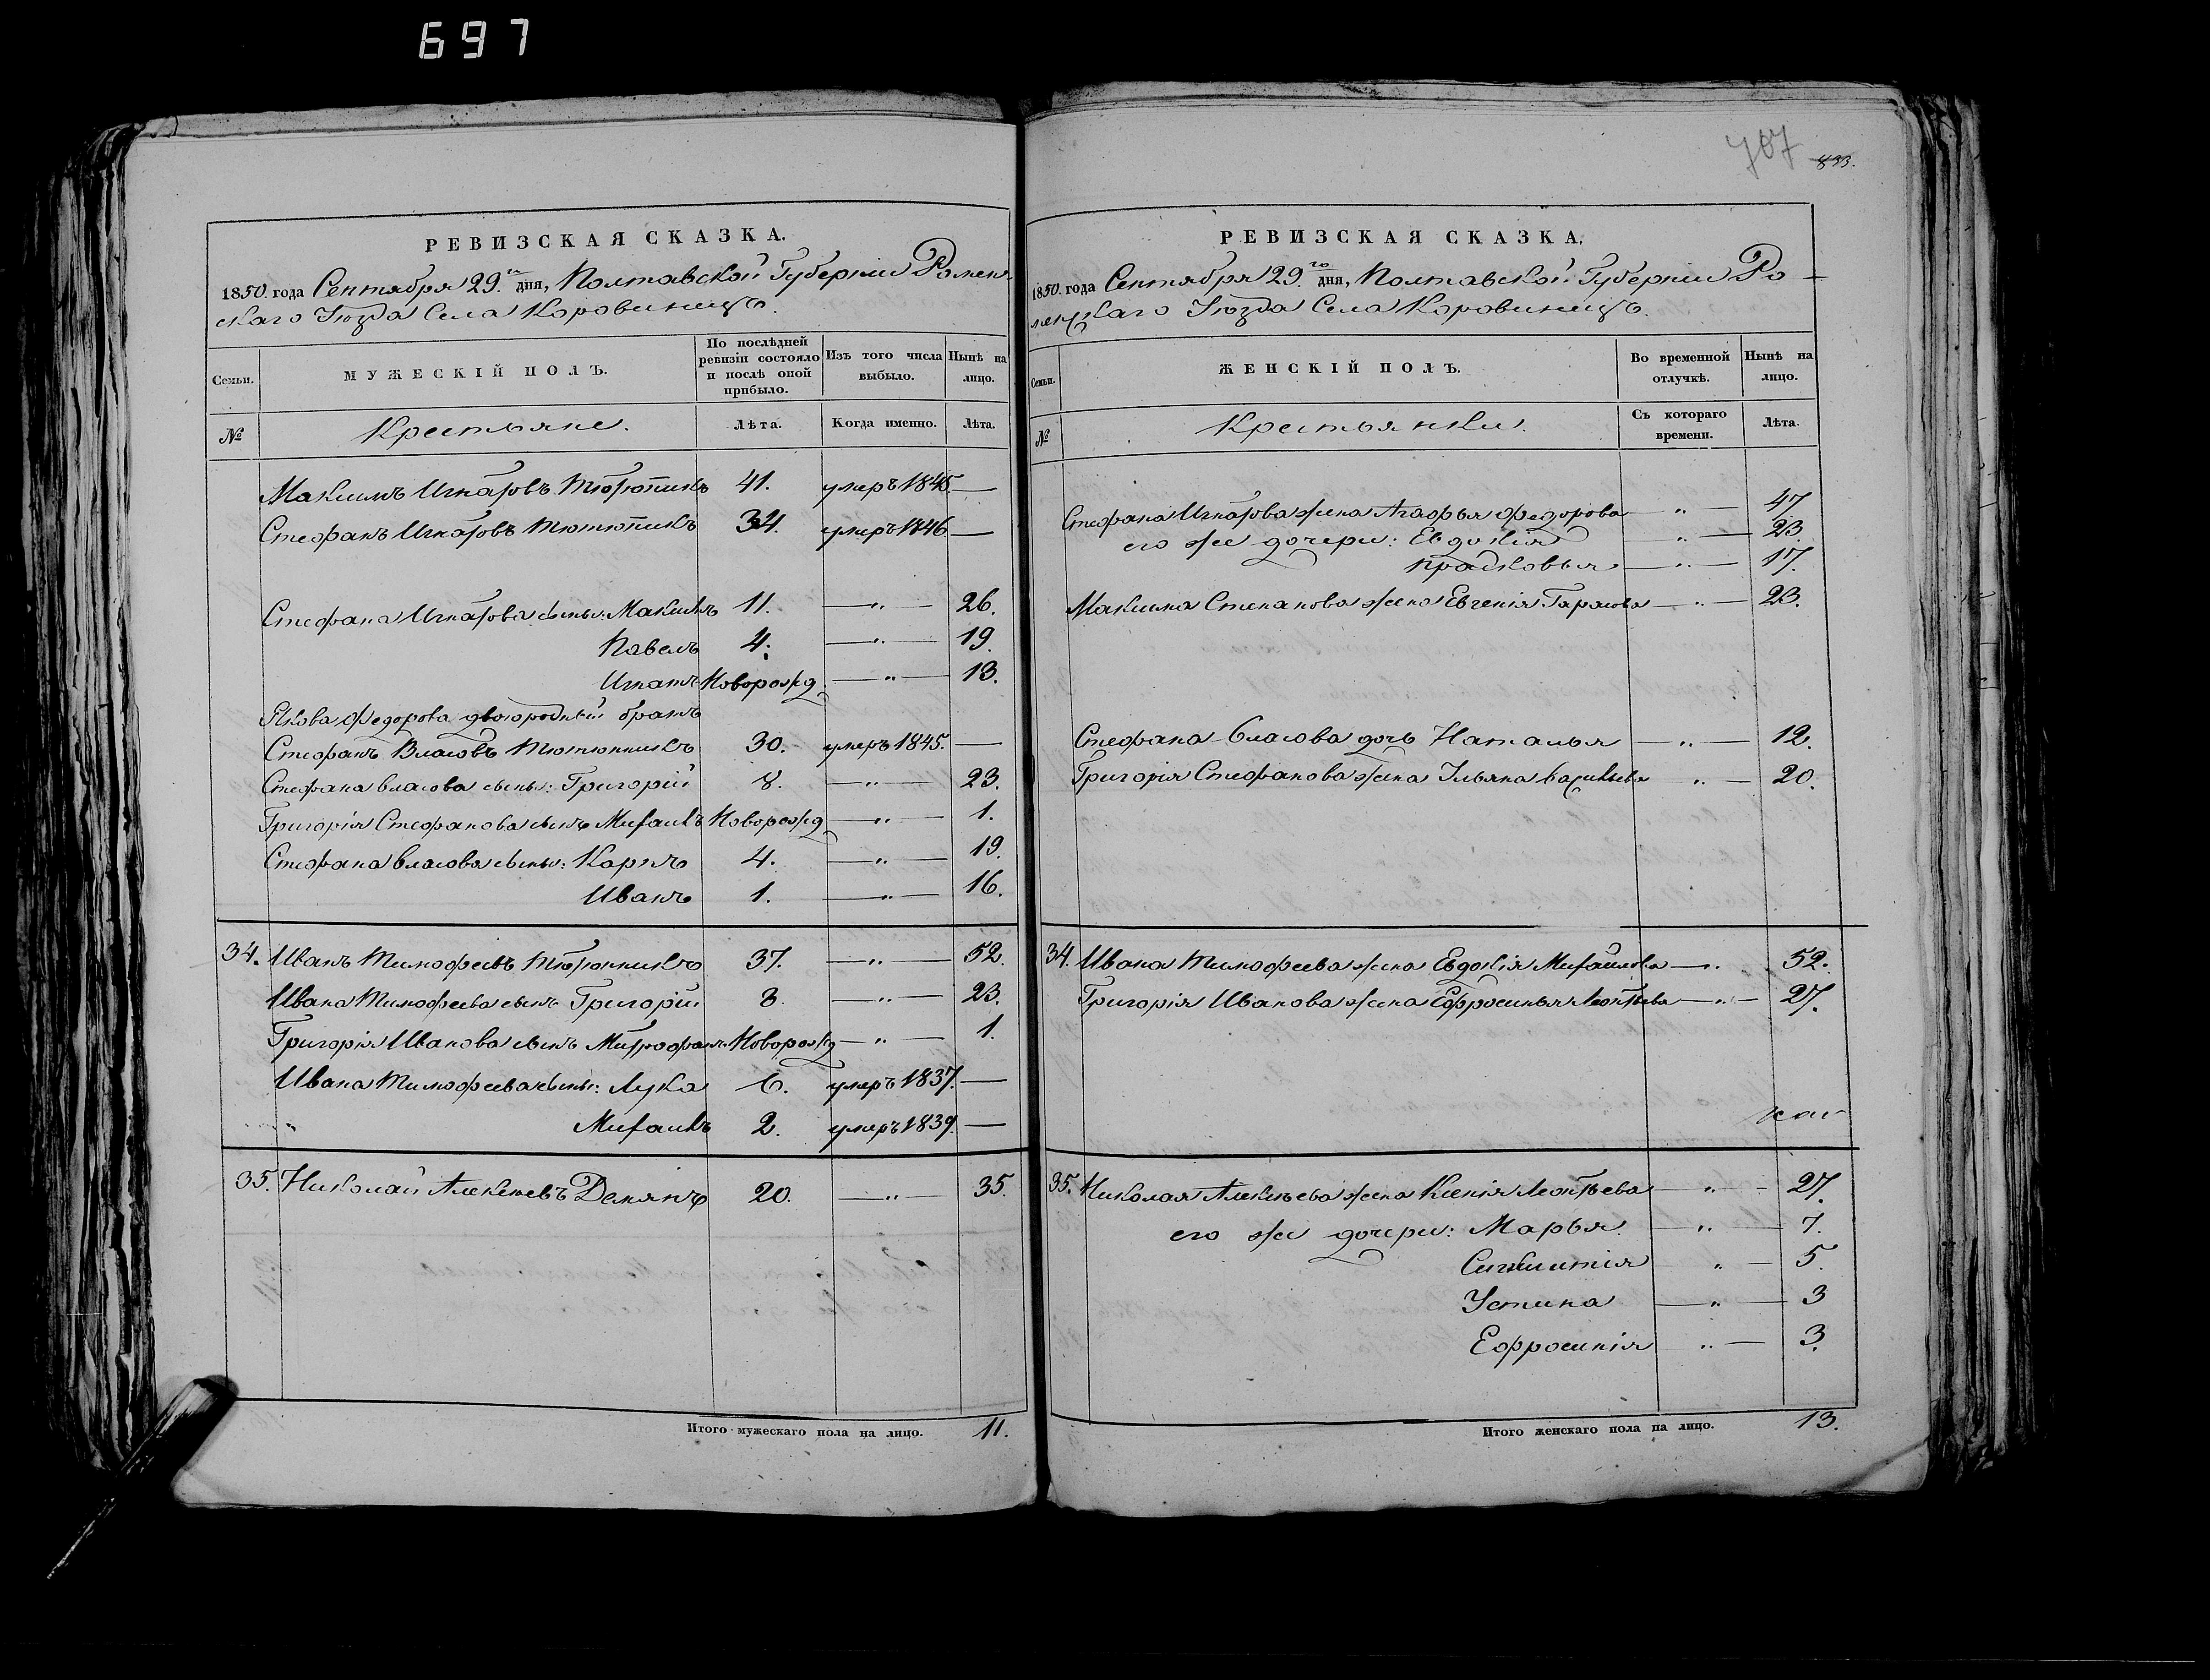 697
707 833.
РЕВИЗСКАЯ СКАЗКА.
1850. года Сентября 29.го дня, Полтавской Губерніи Ромен-
скаго Уѣзда Села Коровинецъ.
Семьи.
МУЖЕСКІЙ ПОЛЪ.
По послѣдней ревизіи состояло и послѣ оной прибыло.
Изъ того числа выбыло.
Нынѣ на лицо.
№ Крестьяне. Лѣта. Когда именно. Лѣта.
Максимъ Игнатовъ Тютюникъ 41. умеръ 1845 —
Стефанъ Игнатовъ Тютюникъ 34. умеръ 1846 —
Стефана Игнатова сыны: Максимъ 11. — „ — 26.
Павелъ 4. — „ — 19.
Игнатъ Новорожд. — „ — 13.
Якова Федорова двоюродный братъ
Стефанъ Власовъ Тютюнникъ 30. умеръ 1845. —
Стефана Власова сыны: Григорій 8. — „ — 23.
Григорія Стефанова сынъ Михаилъ Новорожд — „ — 1.
Стефана Власова сыны: Карпъ 4. — „ — 19.
Иванъ 1. — „ — 16.
34. Иванъ Тимофеевъ Тютюнникъ 37. — „ — 52.
Ивана Тимофеева сынъ Григорій 8. — „ — 23.
Григорія Иванова сынъ Митрофанъ Новорожд — „ — 1.
Ивана Тимофеева сыны: Лука 6. умеръ 1837. —
Михаилъ 2. умеръ 1839. —
35. Николай Алексеевъ Демянъ 20. — „ — 35.
Итого мужескаго пола на лицо. 11.
РЕВИЗСКАЯ СКАЗКА.
1850. года Сентября 29.го дня, Полтавской Губерніи Ро-
менскаго Уѣзда Села Коровинецъ.
Семьи.
ЖЕНСКІЙ ПОЛЪ.
Во временной отлучкѣ.
Нынѣ на лицо.
№ Крестьянки. Съ котораго времени. Лѣта.
Стефана Игнатова жена Агафья Федорова — „ — 47
его же дочери: Евдокія — „ — 23.
Прасковья — „ — 17.
Максима Степанова жена Евгенія Тарасова — „ — 23.
Стефана Власова дочь Наталья — „ — 12.
Григорія Стефанова жена Ульяна Васильева „ — 20.
34. Ивана Тимофеева жена Евдокія Михайлова — „ 52.
Григорія Иванова жена Ефросинья Леонтьева — „ — 27.
35. Николая Алексѣева жена Ксенія Леонтьева — „ — 27.
его же дочери: Марья. — „ — 7.
Синклитія „ — 5.
Устина — „ — 3
Ефросинія „ — 3.
Итого женскаго пола на лицо. 13.